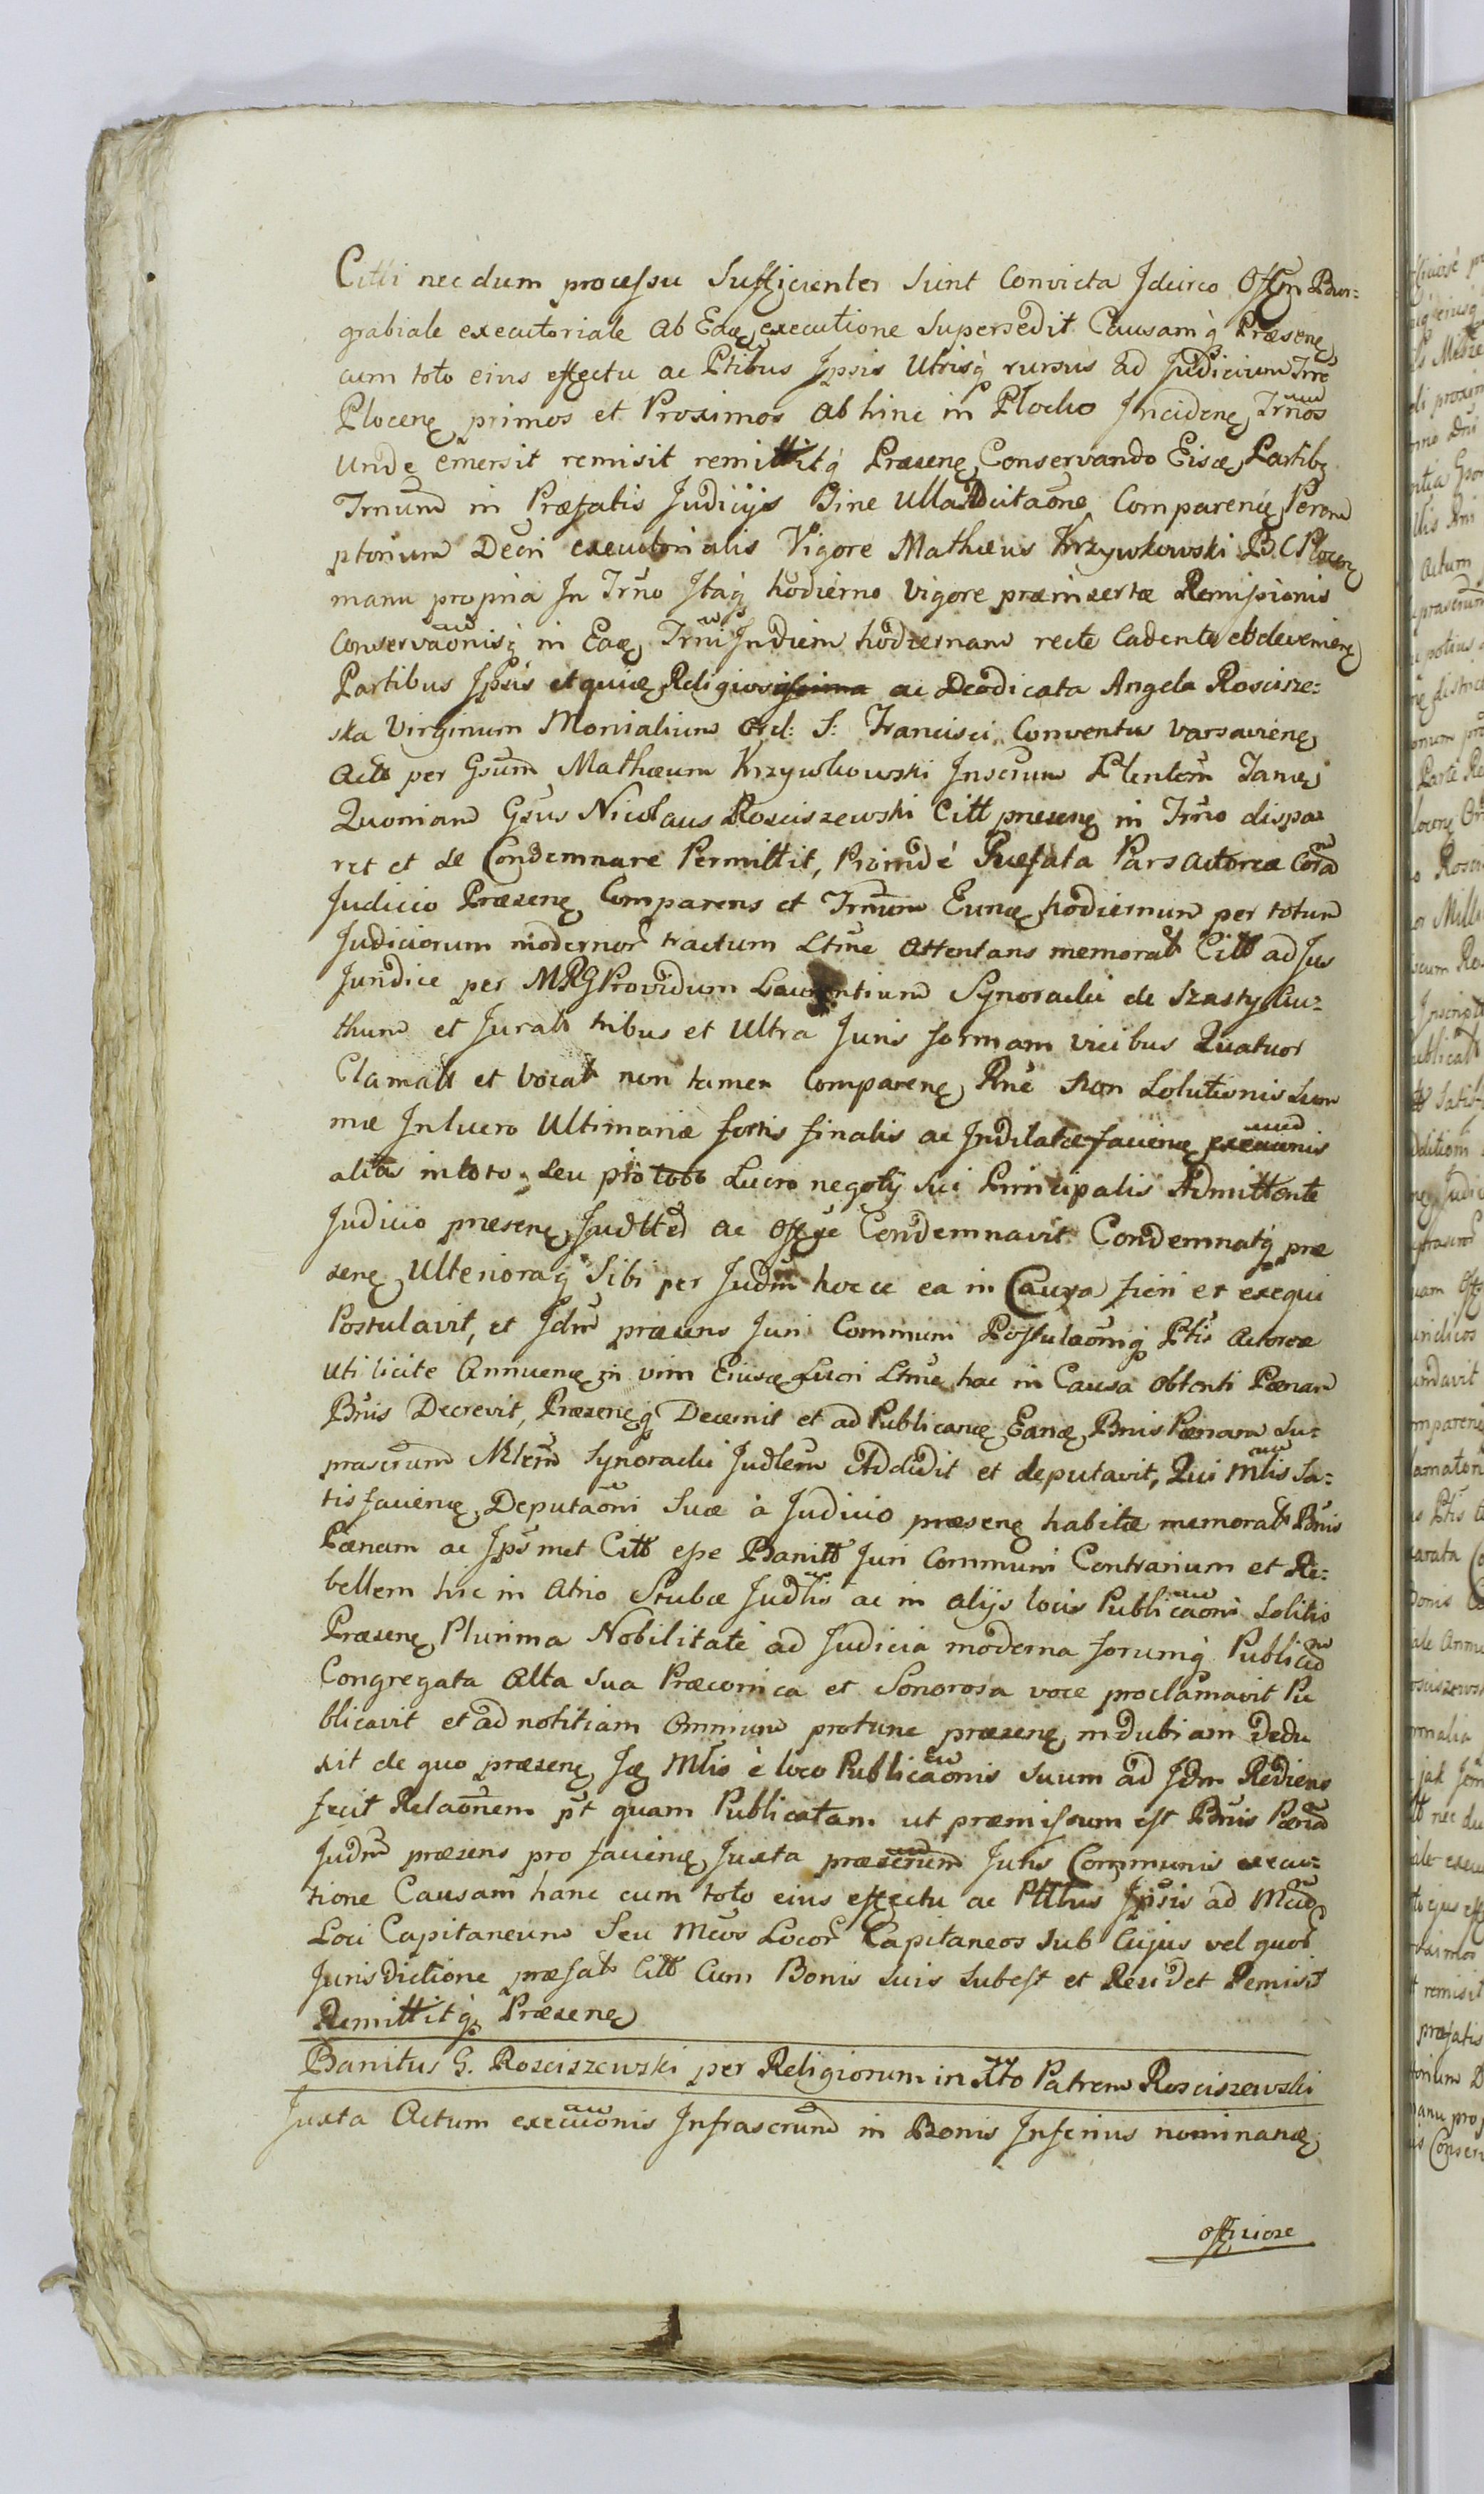 Citti nec dum processu Sufficienter Sint Convicta Jdcirco Offm Bur:
grabiale executoriale ab Ea executione Supersedit Causamq Præsene
cum toto eius effectu ac Ptibus Jpsis Utrisq rursus ad Judicium Trre
Plocene primos et Proximos ab hinc in Plocko Jncidene Trnos
Unde emersit remisit remittitq Præsene Conservando Eisd Partibq
Trnum in Præfatis Judicijs Sine Ulla Adcitaone Comparene Perem
ptorium Decri executorialis Vigore Mathæus Krzywkowski B. C. Plocen
manu propria Jn Trno Jtaq hodierno Vigore præinsertæ Remissionis
Conservaonisq in Ea Trni Jndiem hodiernam recte Cadente et deveniene
Partibus Jpsis et quie Religiosissima ac Deodicata Angela Roscisze:
ska Virginum Monialium Ord: S: Francisci Conventus Varsaviene
Acto per Gsum Mathæum Krzywkowski Jnscrum Plentem
Quoniam Gsus Nicolaus Rosciszewski Citt presene in Trno dispa
ret et se Condemnare Permittit, Proinde Præfata Pars Actorea Cora
Judicio Præsene Comparens et Trnum Eund hodiernum per totum
Judiciorum modernor tractum Ltme Attentans memorat Citt ad Jus
Juridice per MRG Providum Laurentium Synoradz de Szasty Au:
thum et Jurat tribus et Ultra Juris formam vicibus Quatuor
Clamatt et Vocat non tamen Comparene Rne Non Solutionis Sum
mæ Jnlucro Ultimariæ sortis finalis ac Jndilatæ faciene execuonis
alias intoto Seu pro toto Lucro negotij Sui Principalis Admittente
Judicio præsene Judtter ac Offse Condemnavit Condemnatq præ
sene Ulterioraq Sibi per Judm hocce ea in Causa fieri et exequi
Postulavit, et Jdm præsens Juri Communi Postulaoniq Ptis Actoreæ
Uti licite Annuene in vim Eiusd Lucri Ltme hac in Causa Obtenti Pænam
Bnis Decrevit, Præseneq Decernit et ad Publicand Eand Bnis Pænam Su:
prascrum Mtrem Synoradz Judlem Addidit et deputavit, Qui Mtlis Sa:
tis faciene Deputaoni Suæ à Judicio præsene habitæ memorat Bnis
Pænam ac Jpsmet Citt esse Banitt Juri Communi Contrarium et Re:
bellem hic in Atrio Stubæ Judlis ac in alijs locis Publicaoni Solitis
Præsene Plurima Nobilitate ad Judicia moderna forumq Publicu
Congregata Alta Sua Præconica et Sonorosa voce proclamavit Pu
blicavit et ad notitiam Omnium protunc præsene indubiam dedu
xit de quo præsene Jd Mtlis è loco Publicaonis Suum ad Jdm Rediens
fecit Relaonem pt quam Publicatam ut præmissum est Bnis Pæna
Judm præsens pro faciene Juxta præscrum Juris Communis execu:
tione Causam hanc cum toto eius effectu ac Ptibus Jpsis ad Mcum
Loci Capitaneum Seu Mcos Locor Capitaneos sub Cujus vel quor
Jurisdictione præfat Citt Cum Bonis Suis Subest et Residet Remisit
Remittitq Præsene
Banitus G. Rosciszewski per Religiorum in Xto Patrem Rosciszewski
Juxta Actum execuonis Jnfrascrum in Bonis Jnferius nominand
officiose